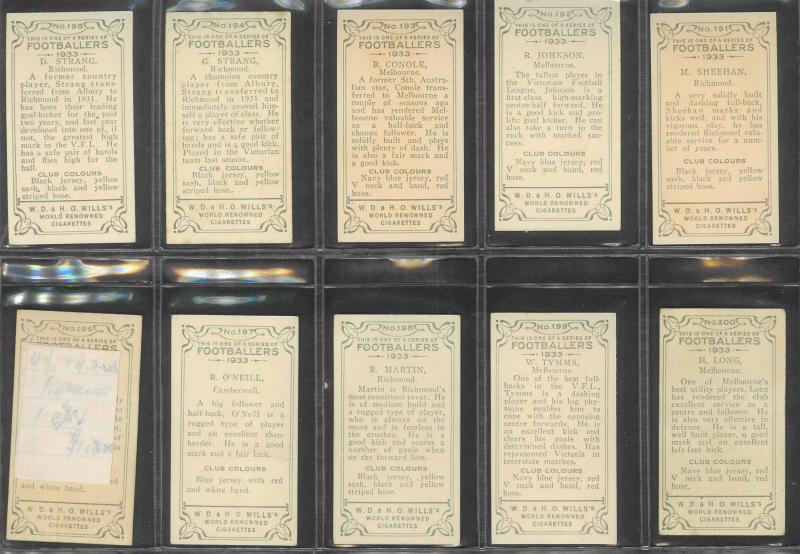 No. 195
THIS IS ONE OF A SERIES OF
FOOTBALLERS
1933
D. STRANG,
Richmond.
A former country
player, Strang trans-
ferred from Albury to
Richmond in 1931. He
has been their leading
goal-kicker for the past
two years, and last year
developed into one of, if
not, the greatest high
mark in the V.F.L. He
has a safe pair of hands
and flies high for the
ball.
CLUB COLOURS
Black jersey, yellow
sash, black and yellow
striped hose.
W. D. & H. O. WILLS'S
WORLD RENOWNED
CIGARETTES
No. 194
THIS IS ONE OF A SERIES OF
FOOTBALLERS
1933
G. STRANG,
Richmond.
A champion country
player from Albury,
Strang transferred to
Richmond in 1931 and
immediately proved him-
self a player of class. He
is very effective whether
forward back or follow-
ing; has a safe pair of
hands and is a good kick.
Played in the Victorian
team last season.
CLUB COLOURS
Black jersey, yellow
sash, black and yellow
striped hose.
W. D. & H. O. WILLS'S
WORLD RENOWNED
CIGARETTES
No. 193
THIS IS ONE OF A SERIES OF
FOOTBALLERS
1933
R. CONOLE,
Melbourne.
A former Sth. Austra-
lian star, Conole trans-
ferred to Melbourne a
couple of seasons ago
and has rendered Mel-
bourne valuable service
as a half-back and
change follower. He is
solidly built and plays
with plenty of dash. He
is also a fair mark and
a good kick.
CLUB COLOURS
Navy blue jersey, red
V neck and band, red
hose.
W. D. & H. O. WILLS'S
WORLD RENOWNED
CIGARETTES
No. 192
THIS IS ONE OF A SERIES OF
FOOTBALLERS
1933
R. JOHNSON,
Melbourne.
The tallest player in
the Victorian Football
League, Johnson is a
first-class high-marking
centre-half forward. He
is a good kick and pro-
lific goal kicker. He can
also take a turn in the
ruck with marked suc-
cess.
CLUB COLOURS
Navy blue jersey, red
V neck and band, red
hose.
W. D. & H. O. WILLS'S
WORLD RENOWNED
CIGARETTES
No. 191
THIS IS ONE OF A SERIES OF
FOOTBALLERS
1933
M. SHEEHAN,
Richmond.
A very solidly built
and dashing full-back,
Sheehan marks and
kicks well, and with his
vigorous play, he has
rendered Richmond valu-
able service for a num-
ber of years.
CLUB COLOURS
Black jersey, yellow
sash, black and yellow
striped hose.
W. D. & H. O. WILLS'S
WORLD RENOWNED
CIGARETTES
No. 196
THIS IS ONE OF A SERIES OF
FOOTBALLERS
1933
and white band.
W. D. & H. O. WILLS'S
WORLD RENOWNED
CIGARETTES
No. 197
THIS IS ONE OF A SERIES OF
FOOTBALLERS
1933
R. O'NEILL,
Camberwell.
A big follower and
half-back, O'Neill is a
rugged type of player
and an excellent shep-
herder. He is a good
mark and a fair kick.
CLUB COLOURS
Blue jersey with red
and white band.
W. D. & H. O. WILLS'S
WORLD RENOWNED
CIGARETTES
No. 198
THIS IS ONE OF A SERIES OF
FOOTBALLERS
1933
R. MARTIN,
Richmond.
Martin is Richmond's
most consistent rover. He
is of medium build and
a rugged type of player,
who is always on the
move and is fearless in
the crushes. He is a
good kick and scores a
number of goals when
on the forward line.
CLUB COLOURS
Black jersey, yellow
sash, black and yellow
striped hose.
W. D. & H. O. WILLS'S
WORLD RENOWNED
CIGARETTES
No. 199
THIS IS ONE OF A SERIES OF
FOOTBALLERS
1933
W. TYMMS,
Melbourne.
One of the best full-
backs in the V.F.L.,
Tymms is a dashing
player and his big phy-
sique enables him to
cope with the opposing
centre forwards. He is
an excellent kick and
clears his goals with
determined dashes. Has
represented Victoria in
interstate matches.
CLUB COLOURS
Navy blue jersey, red
V neck and band, red
hose.
W. D. & H. O. WILLS'S
WORLD RENOWNED
CIGARETTES
No. 200
THIS IS ONE OF A SERIES OF
FOOTBALLERS
1933
H. LONG,
Melbourne.
One of Melbourne's
best utility players, Long
has rendered the club
excellent service as a
centre and follower. He
is also very effective in
defence. He is a tall,
well built player, a good
mark and an excellent
left-foot kick.
CLUB COLOURS
Navy blue jersey, red
V neck and band, red
hose.
W. D. & H. O. WILLS'S
WORLD RENOWNED
CIGARETTES